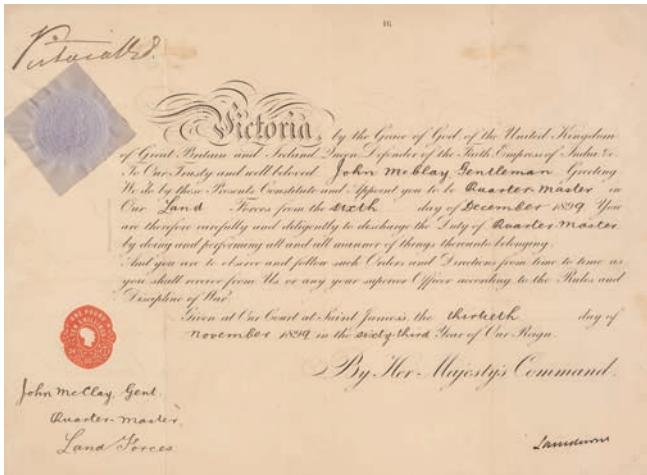 16
Victoria R. I.
Victoria, by the Grace of God, of the United Kingdom
of Great Britain and Ireland, Queen, Defender of the Faith, Empress of India &c.
To Our Trusty and well beloved John McClay, Gentleman Greeting
We do by these Presents Constitute and Appoint you to be Quarter-Master in
Our Land Forces from the sixth day of December 1899 You
are therefore carefully and diligently to discharge the Duty of Quarter-Master
by doing and performing all and all manner of things thereunto belonging.
And you are to observe and follow such Orders and Directions from time to time as
you shall receive from Us or any your superior Officer according to the Rules and
Discipline of War.
Given at Our Court at Saint James's, the thirtieth day of
November 1899 in the sixty third Year of Our Reign.
By Her Majesty's Command.
ONE POUND
TEN SHILLINGS
John McClay, Gent.
Quarter-Master,
Land Forces
Lansdowne